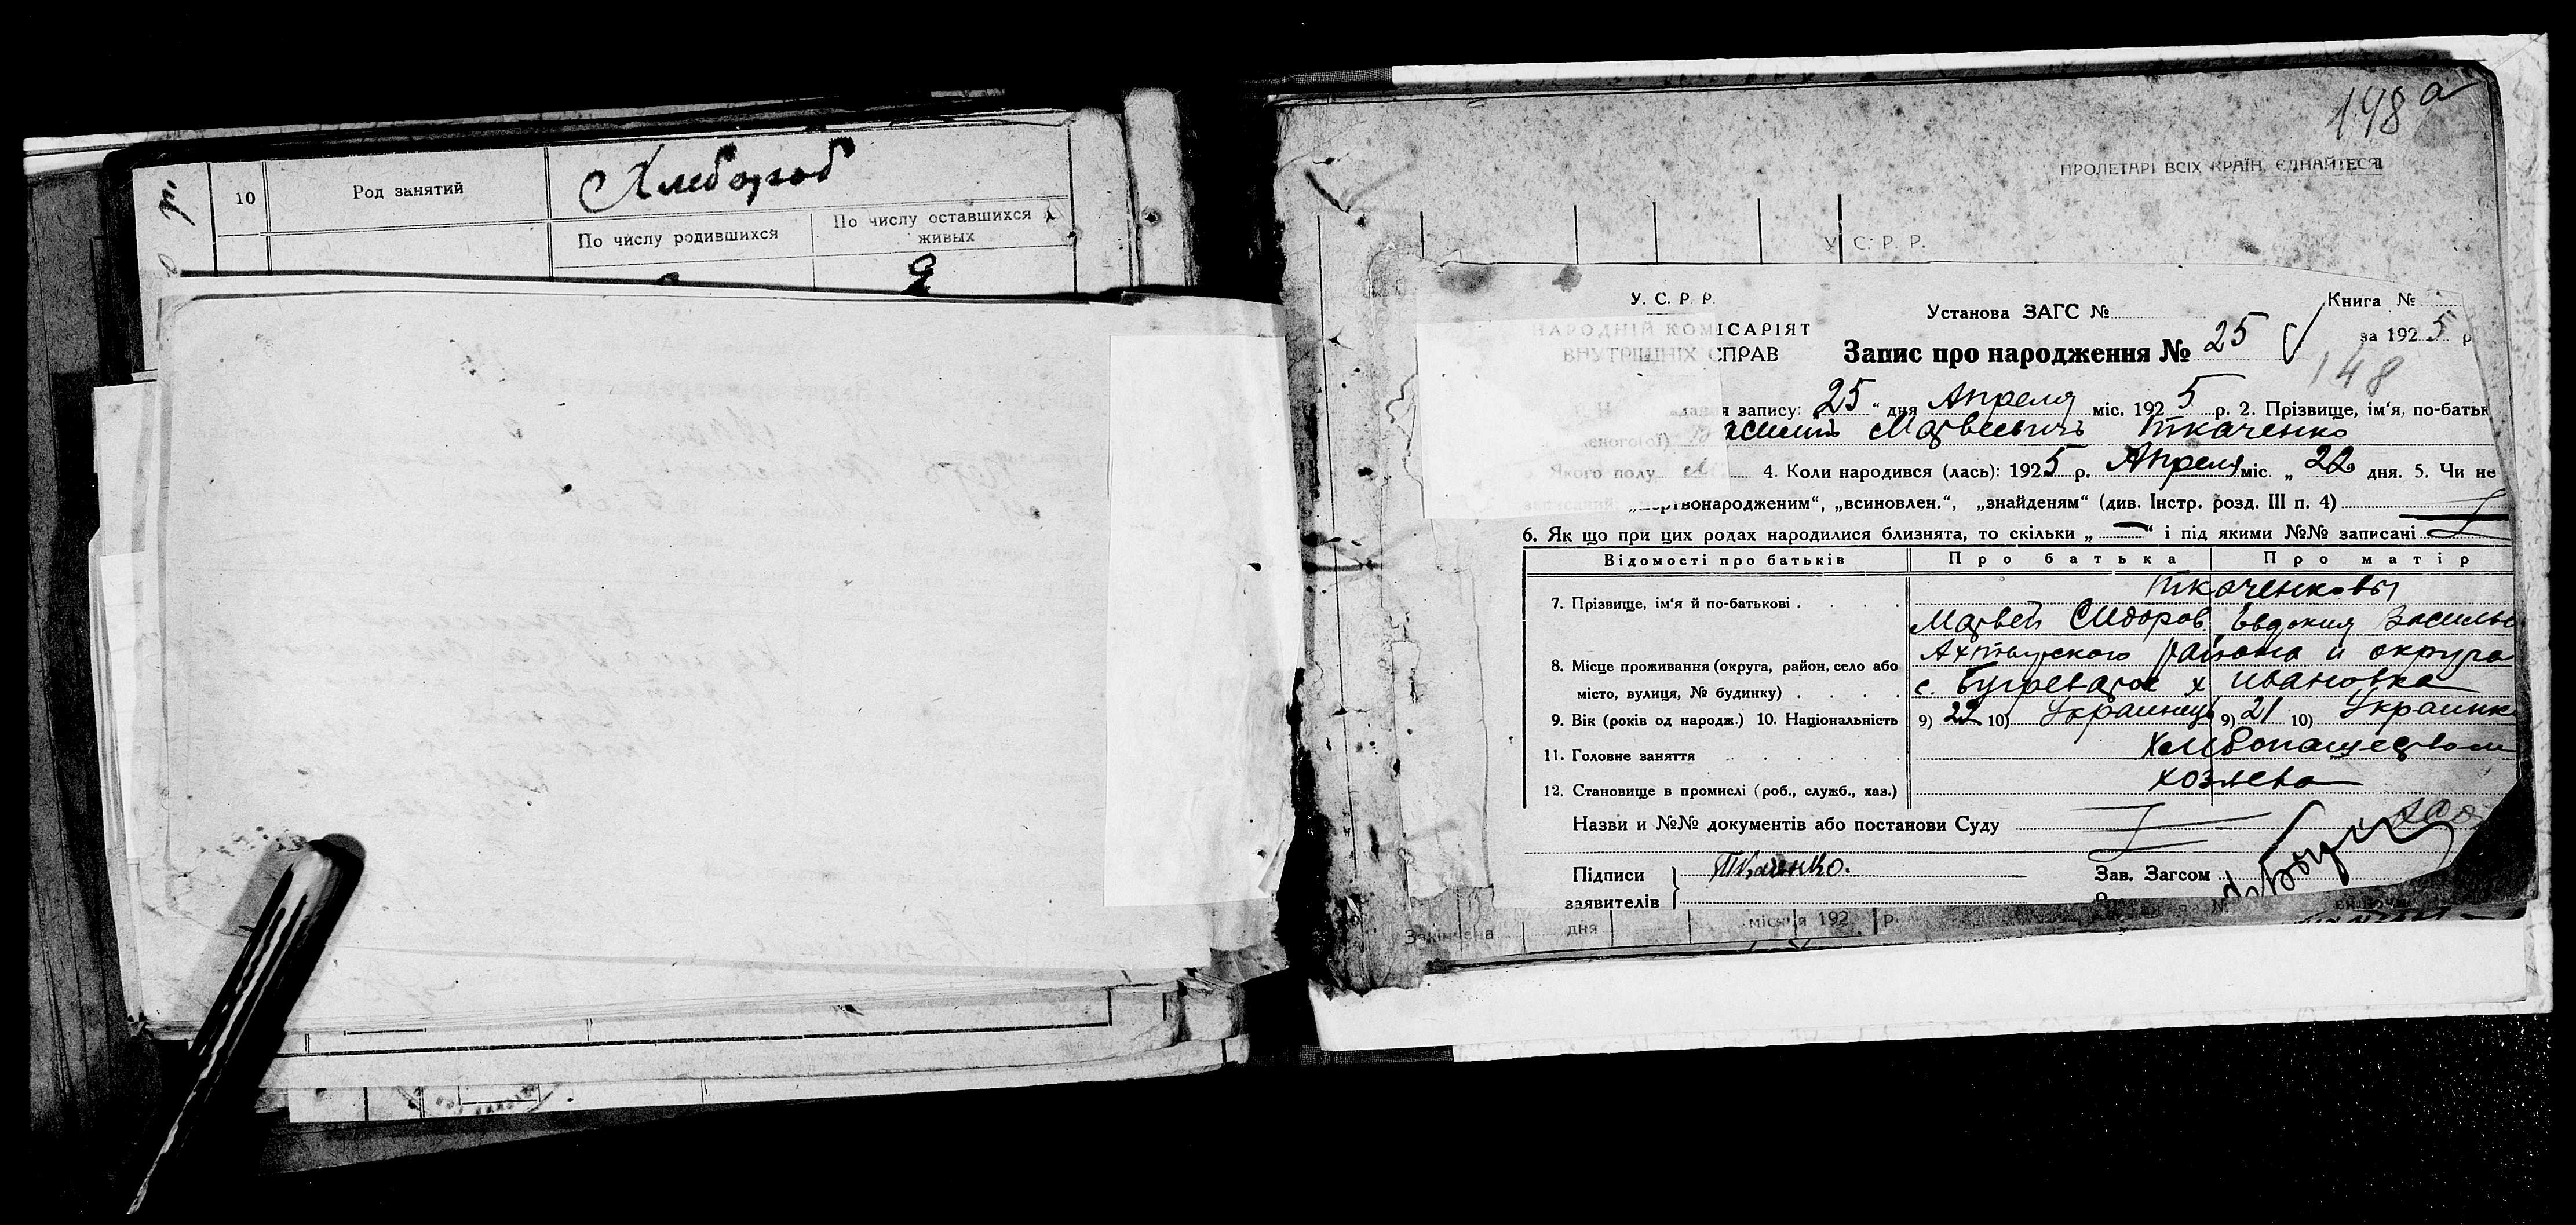 10 Род занятий Хлебороб
По числу родившихся По числу оставшихся живых
2
198 а
ПРОЛЕТАРІ ВСІХ КРАЇН, ЄДНАЙТЕСЯ
У. С. Р. Р.
У. С. Р. Р.
НАРОДНІЙ КОМІСАРІЯТ
ВНУТРІШНІХ СПРАВ
Установа ЗАГС №
Книга №
за 1925 р
Запис про народження № 25
148
я запису: 25 " дня Апреля міс. 1925 р. 2. Прізвище, ім'я, по-батьк
еного(ої) Василь Матвеевичь Ткаченко
Якого полу М 4. Коли народився (лась): 1925 р. Апреля міс. „ 22 дня. 5. Чи не
„мертвонародженим“, „всиновлен.“, „знайденям“ (див. Інстр. розд. III п. 4)
6. Як що при цих родах народилися близнята, то скільки „ — “ і під якими №№ записані
Відомості про батьків Про батька Про матір
7. Прізвище, ім'я й по-батькові Ткаченковы
Матвей Сидоров. Евдокия Василь
8. Місце проживання (округа, район, село або Ахтырского района и округа
місто, вулиця, № будинку) с. Бугреватое х Ивановка
9. Вік (років од народж.) 10. Національність 9) 22 10) Украинец 9) 21 10) Украинк
11. Головне заняття Хлебопашеством
12. Становище в промислі (роб., служб., хаз.) хозяева
Назви и №№ документів або постанови Суду
Підписи Ткаченко. Зав. Загсом
заявителів
Закінчена дня місяця 192 р.